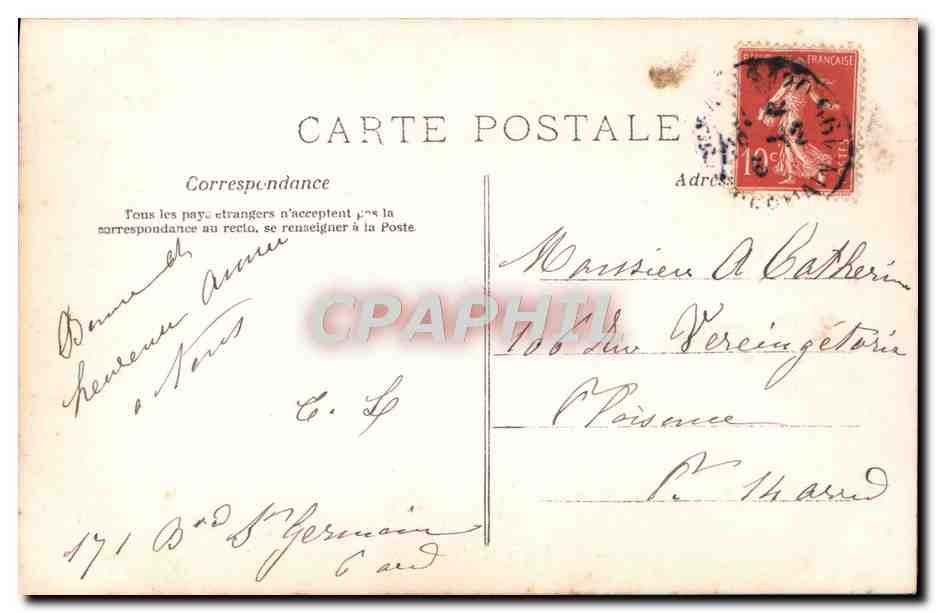 CARTE POSTALE
RÉPUBLIQUE FRANÇAISE
10c
POSTES
Correspondance
Tous les pays etrangers n'acceptent pas la
correspondance au recto, se renseigner à la Poste
Adresse
Bonne et
heureuse année
a Vous
C. L
171 Bard St Germain
6 ard
Monsieur A Catherin
106 rue Vereingétorix
Plaisance
P. 14 arrd
CPAPHIL